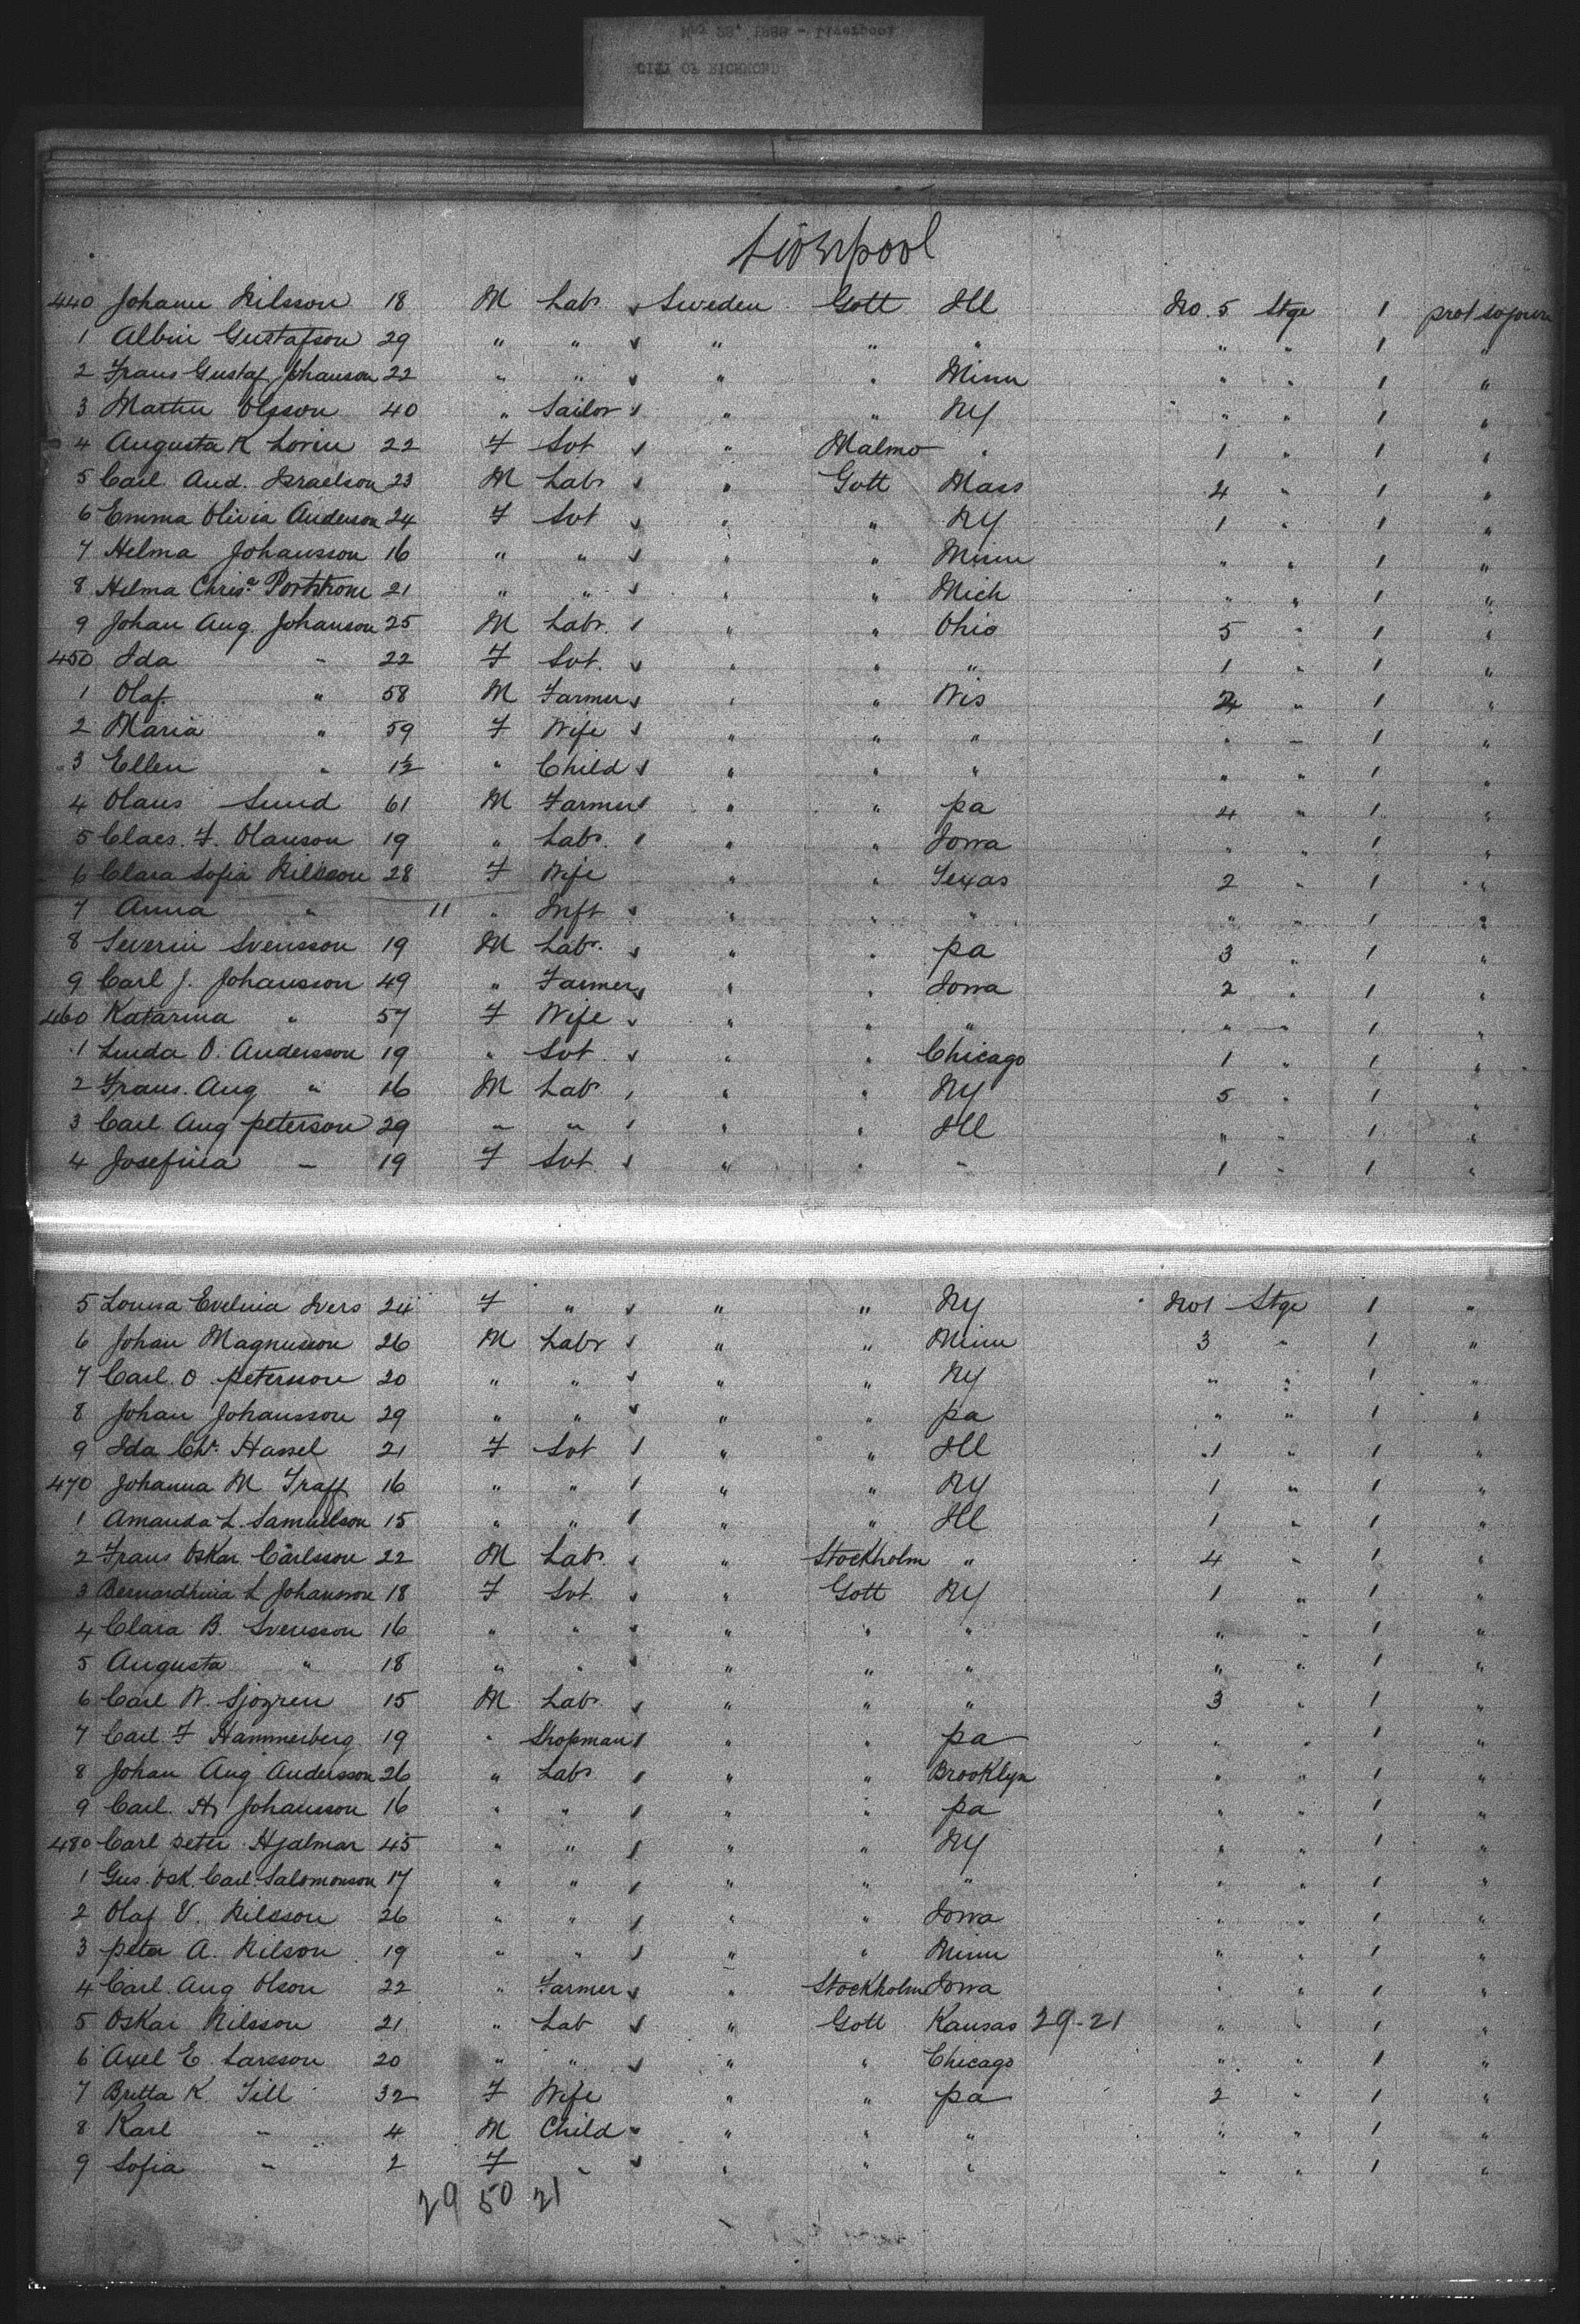 May 28, 1889 - Liverpool
CITY OF RICHMOND
Liverpool
440 Johann Nilsson 18 M Labr s Sweden Gott Ill No. 5 Stge 1 prot sojourn
1 Albin Gustafson 29 " " s " " " " " 1 "
2 Frans Gustaf Johanson 22 " " s " " Minn " " 1 "
3 Martin Olsson 40 " Sailor s " " NY " " 1 "
4 Augusta K Lorin 22 F Svt s " Malmo " 1 " 1 "
5 Carl And. Israelson 23 M Labr s " Gott Mass 4 " 1 "
6 Emma Olivia Anderson 24 F Svt s " " NY 1 " 1 "
7 Helma Johansson 16 " " s " " Minn " " 1 "
8 Hilma Chrisa Portstrom 21 " " s " " Mich " " 1 "
9 Johan Aug. Johanson 25 M Labr. s " " Ohio 5 " 1 "
450 Ida " 22 F Svt. s " " " 1 " 1 "
1 Olaf " 58 M Farmer s " " Wis 2 " 1 "
2 Maria " 59 F Wife s " " " " " 1 "
3 Ellen " 1½ " Child s " " " " " 1 "
4 Olaus Lund 61 M Farmer s " " pa 4 " 1 "
5 Claes. F. Olauson 19 " Labr. s " " Iowa " " 1 "
6 Clara Sofia Nilsson 28 F Wife " " Texas 2 " 1 "
7 Anna " 11 " Inft s " " " " " 1 "
8 Severin Svensson 19 M Labr. s " " pa 3 " 1 "
9 Carl J. Johansson 49 " Farmer s " " Iowa 2 " 1 "
460 Katarina " 57 F Wife s " " " " " 1 "
1 Linda O. Andersson 19 " Svt s " " Chicago 1 " 1 "
2 Frans. Aug " 16 M Labr s " " NY 5 " 1 "
3 Carl Aug peterson 29 " " s " " Ill " " 1 "
4 Josefina " 19 F Svt s " " " 1 " 1 "
5 Lovisa Evelina Ivers 24 F " s " " NY No1 Stge 1 "
6 Johan Magnusson 26 M Labr s " " Minn 3 " 1 "
7 Carl. O. peterson 20 " " s " " NY " " 1 "
8 Johan Johansson 29 " " s " " pa " " 1 "
9 Ida Chr. Hassel 21 F Svt s " " Ill 1 " 1 "
470 Johanna M Traff 16 " " s " " NY 1 " 1 "
1 Amanda L. Samuelson 15 " " s " " Ill 1 " 1 "
2 Frans Oskar Carlsson 22 M Labr s " Stockholm " 4 " 1 "
3 Bernardhina L Johanson 18 F Svt. s " Gott NY 1 " 1 "
4 Clara B. Svensson 16 " " s " " " " " 1 "
5 Augusta " 18 " " s " " " " " 1 "
6 Carl W. Sjogren 15 M Labr s " " " 3 " 1 "
7 Carl F Hammerberg 19 " Shopman s " " pa " " 1 "
8 Johan Aug Andersson 26 " Labr s " " Brooklyn " " 1 "
9 Carl. H. Johansson 16 " " s " " pa " " 1 "
480 Carl peter Hjalmar 45 " " s " " NY " " 1 "
1 Gus. Osk. Carl. Salomonson 17 " " s " " " " " 1 "
2 Olaf V. Nilsson 26 " " s " " Iowa " " 1 "
3 peter A. Nilson 19 " " s " " Minn " " 1 "
4 Carl Aug Olson 22 " Farmer s " Stockholm Iowa " " 1 "
5 Oskar Nilsson 21 " Lab s " Gott Kansas 29-21 " " 1 "
6 Axel E. Larsson 20 " " s " " Chicago " " 1 "
7 Britta K Till 32 F Wife " " pa 2 " 1 "
8 Karl " 4 M Child s " " " " " 1 "
9 Sofia " 2 F " s " " " " " 1 "
29 50 21